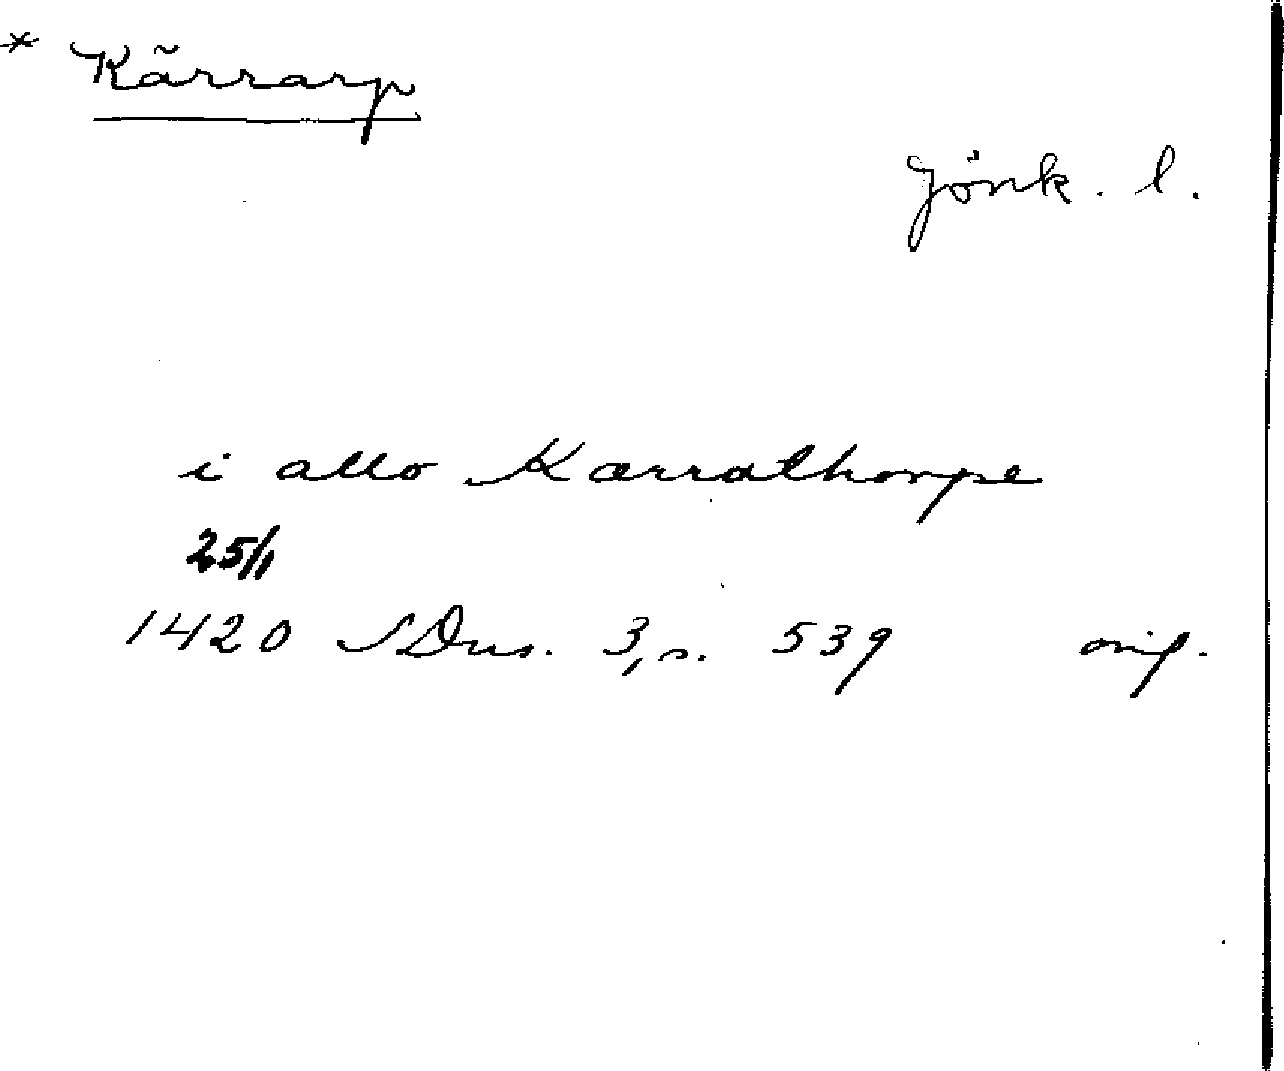 * Kärrarp
Jönk. l.
i allo Kærrathorpe
25/1
1420 SDns. 3, s. 539 orig.